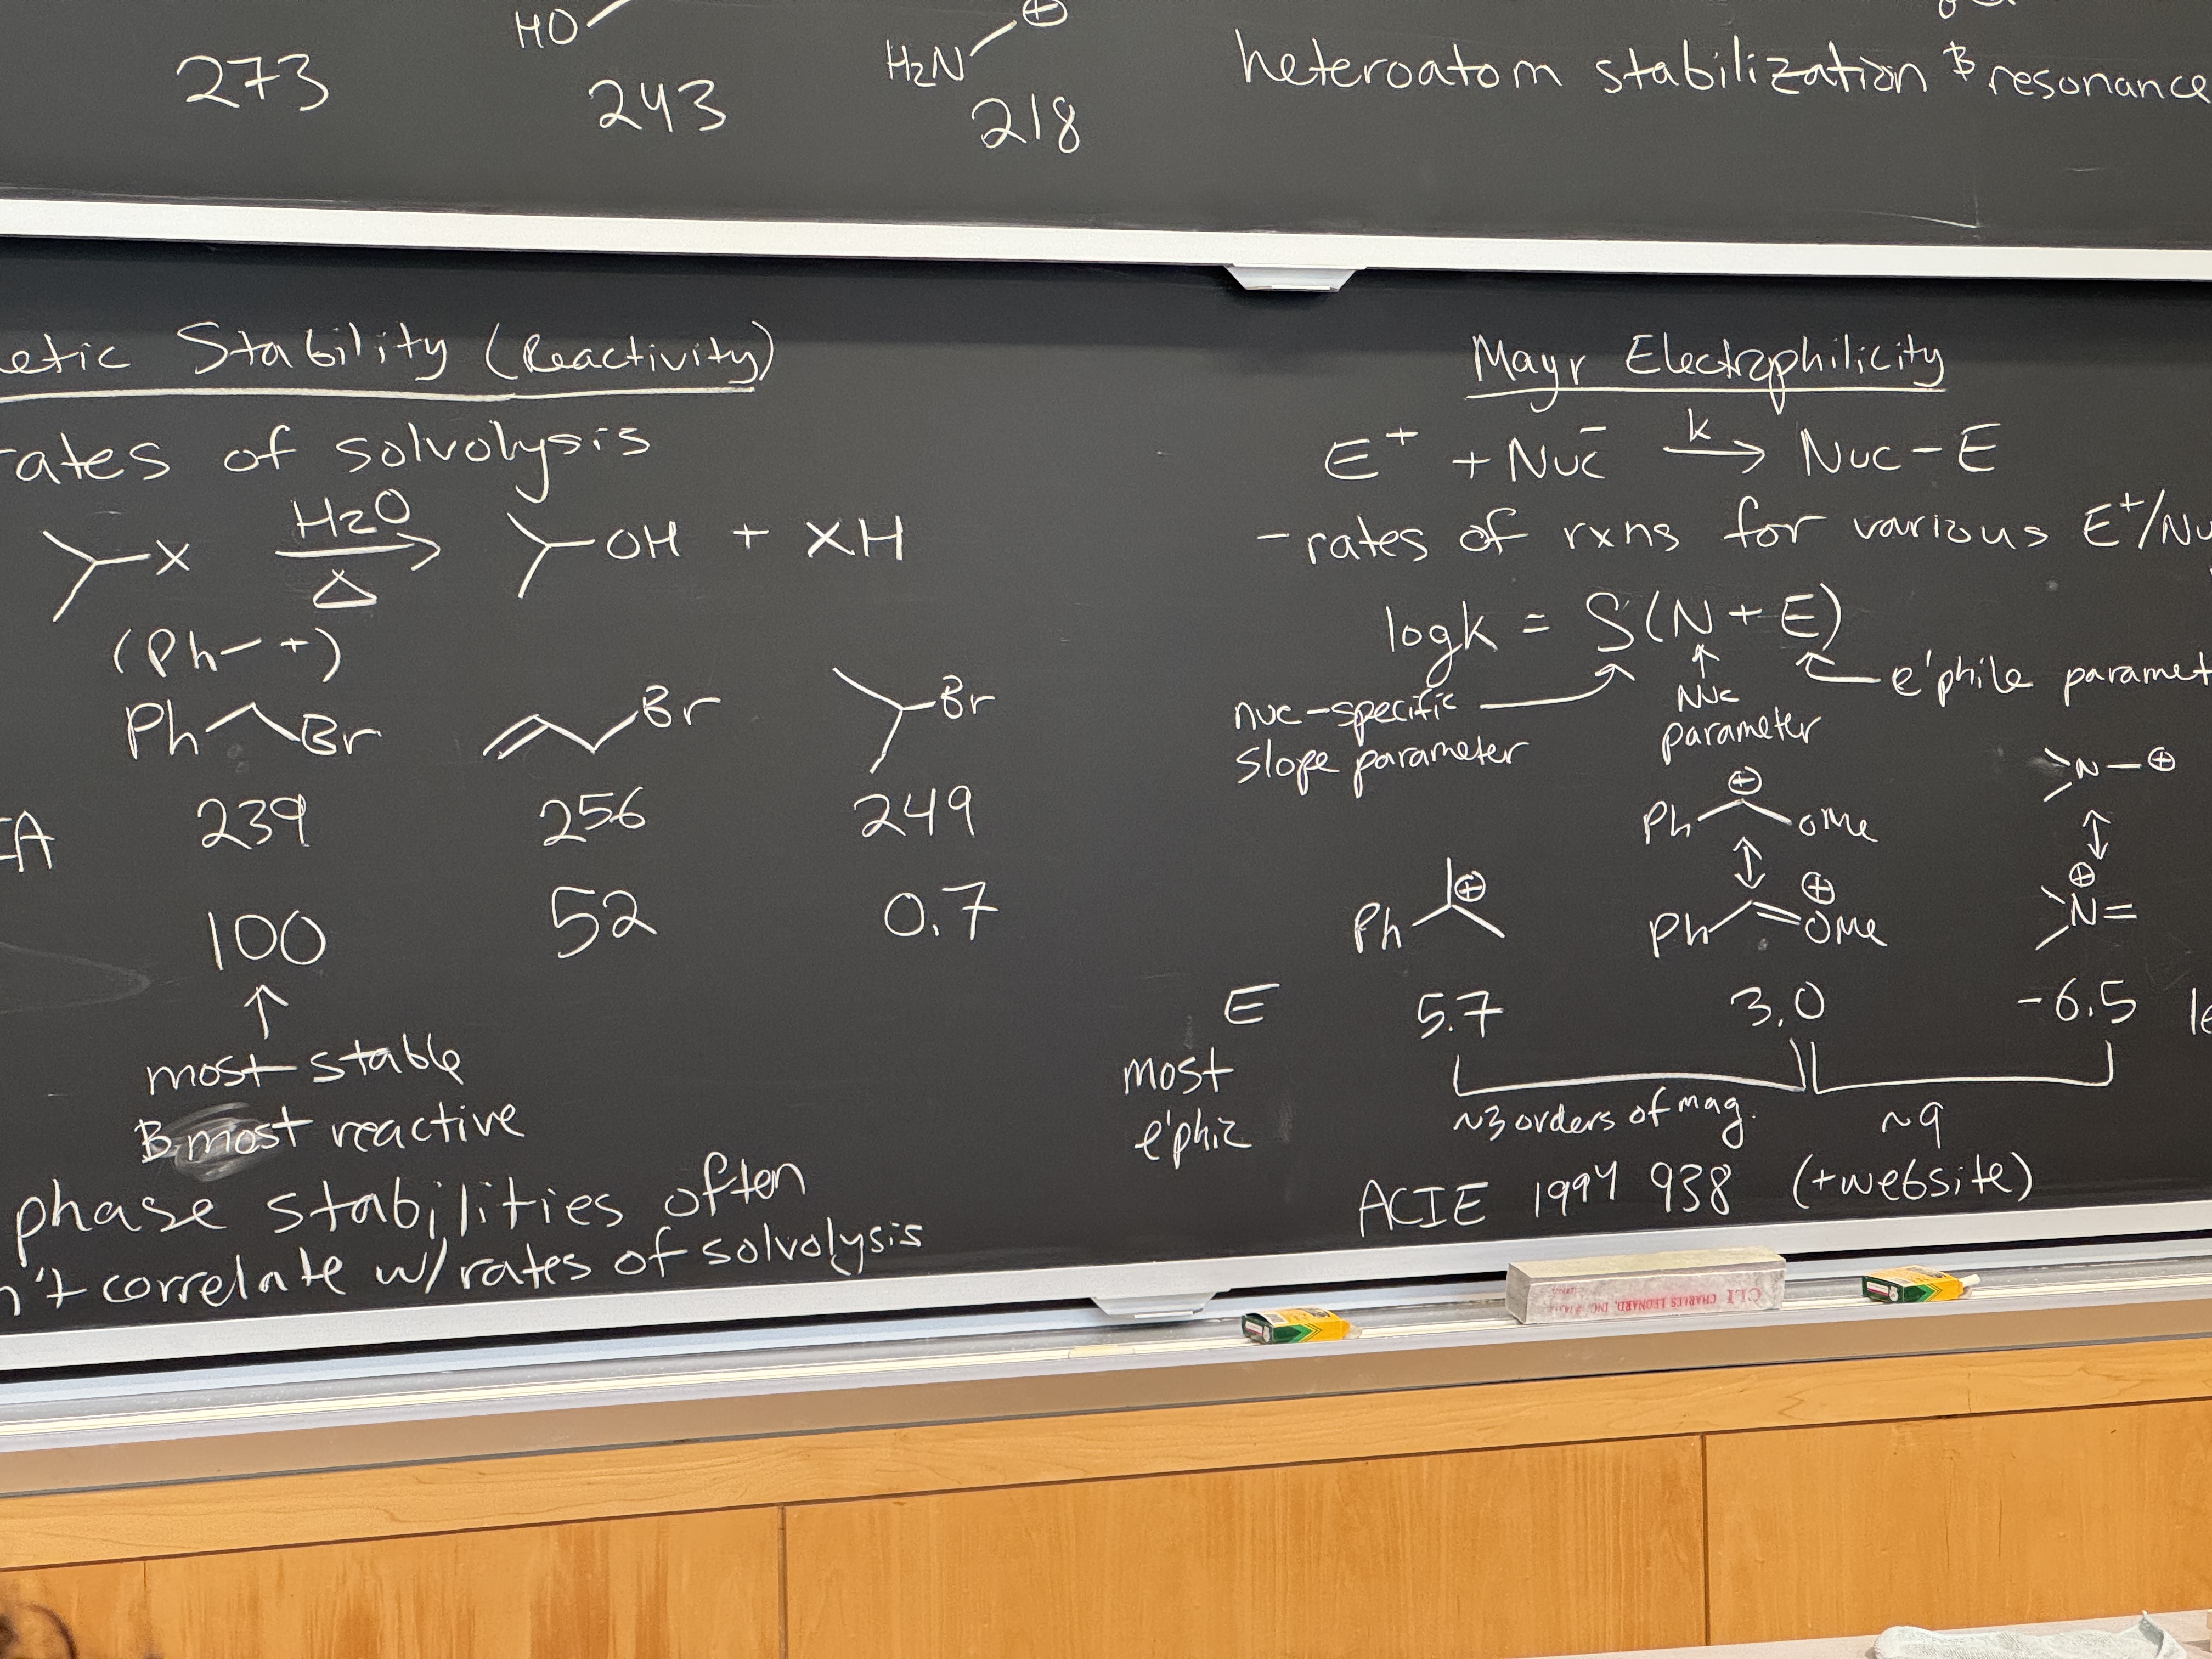 HO
H₂N ⊕
273
243
218
heteroatom stabilization & resonance
etic Stability (Reactivity)
rates of solvolysis
X H₂O Δ OH + XH
(Ph— +)
Ph Br
Br
Br
239 256 249
100 52 0.7
↑
most stable
& most reactive
phase stabilities often
n't correlate w/ rates of solvolysis
Mayr Electrophilicity
E⁺ + Nuc⁻ k → Nuc–E
– rates of rxns for various E⁺/Nu
log k = S(N + E)
nuc-specific
slope parameter
Nuc
parameter
e'phile paramet
Ph ⊕
Ph ⊕ OMe
↕
Ph ⊕ OMe
N—⊕
↕
⊕
N=
E 5.7 3.0 -6.5 le
most
e'phic
~3 orders of mag.
~9
ACIE 1994 938 (+website)
CLI CHARLES LEONARD, INC.